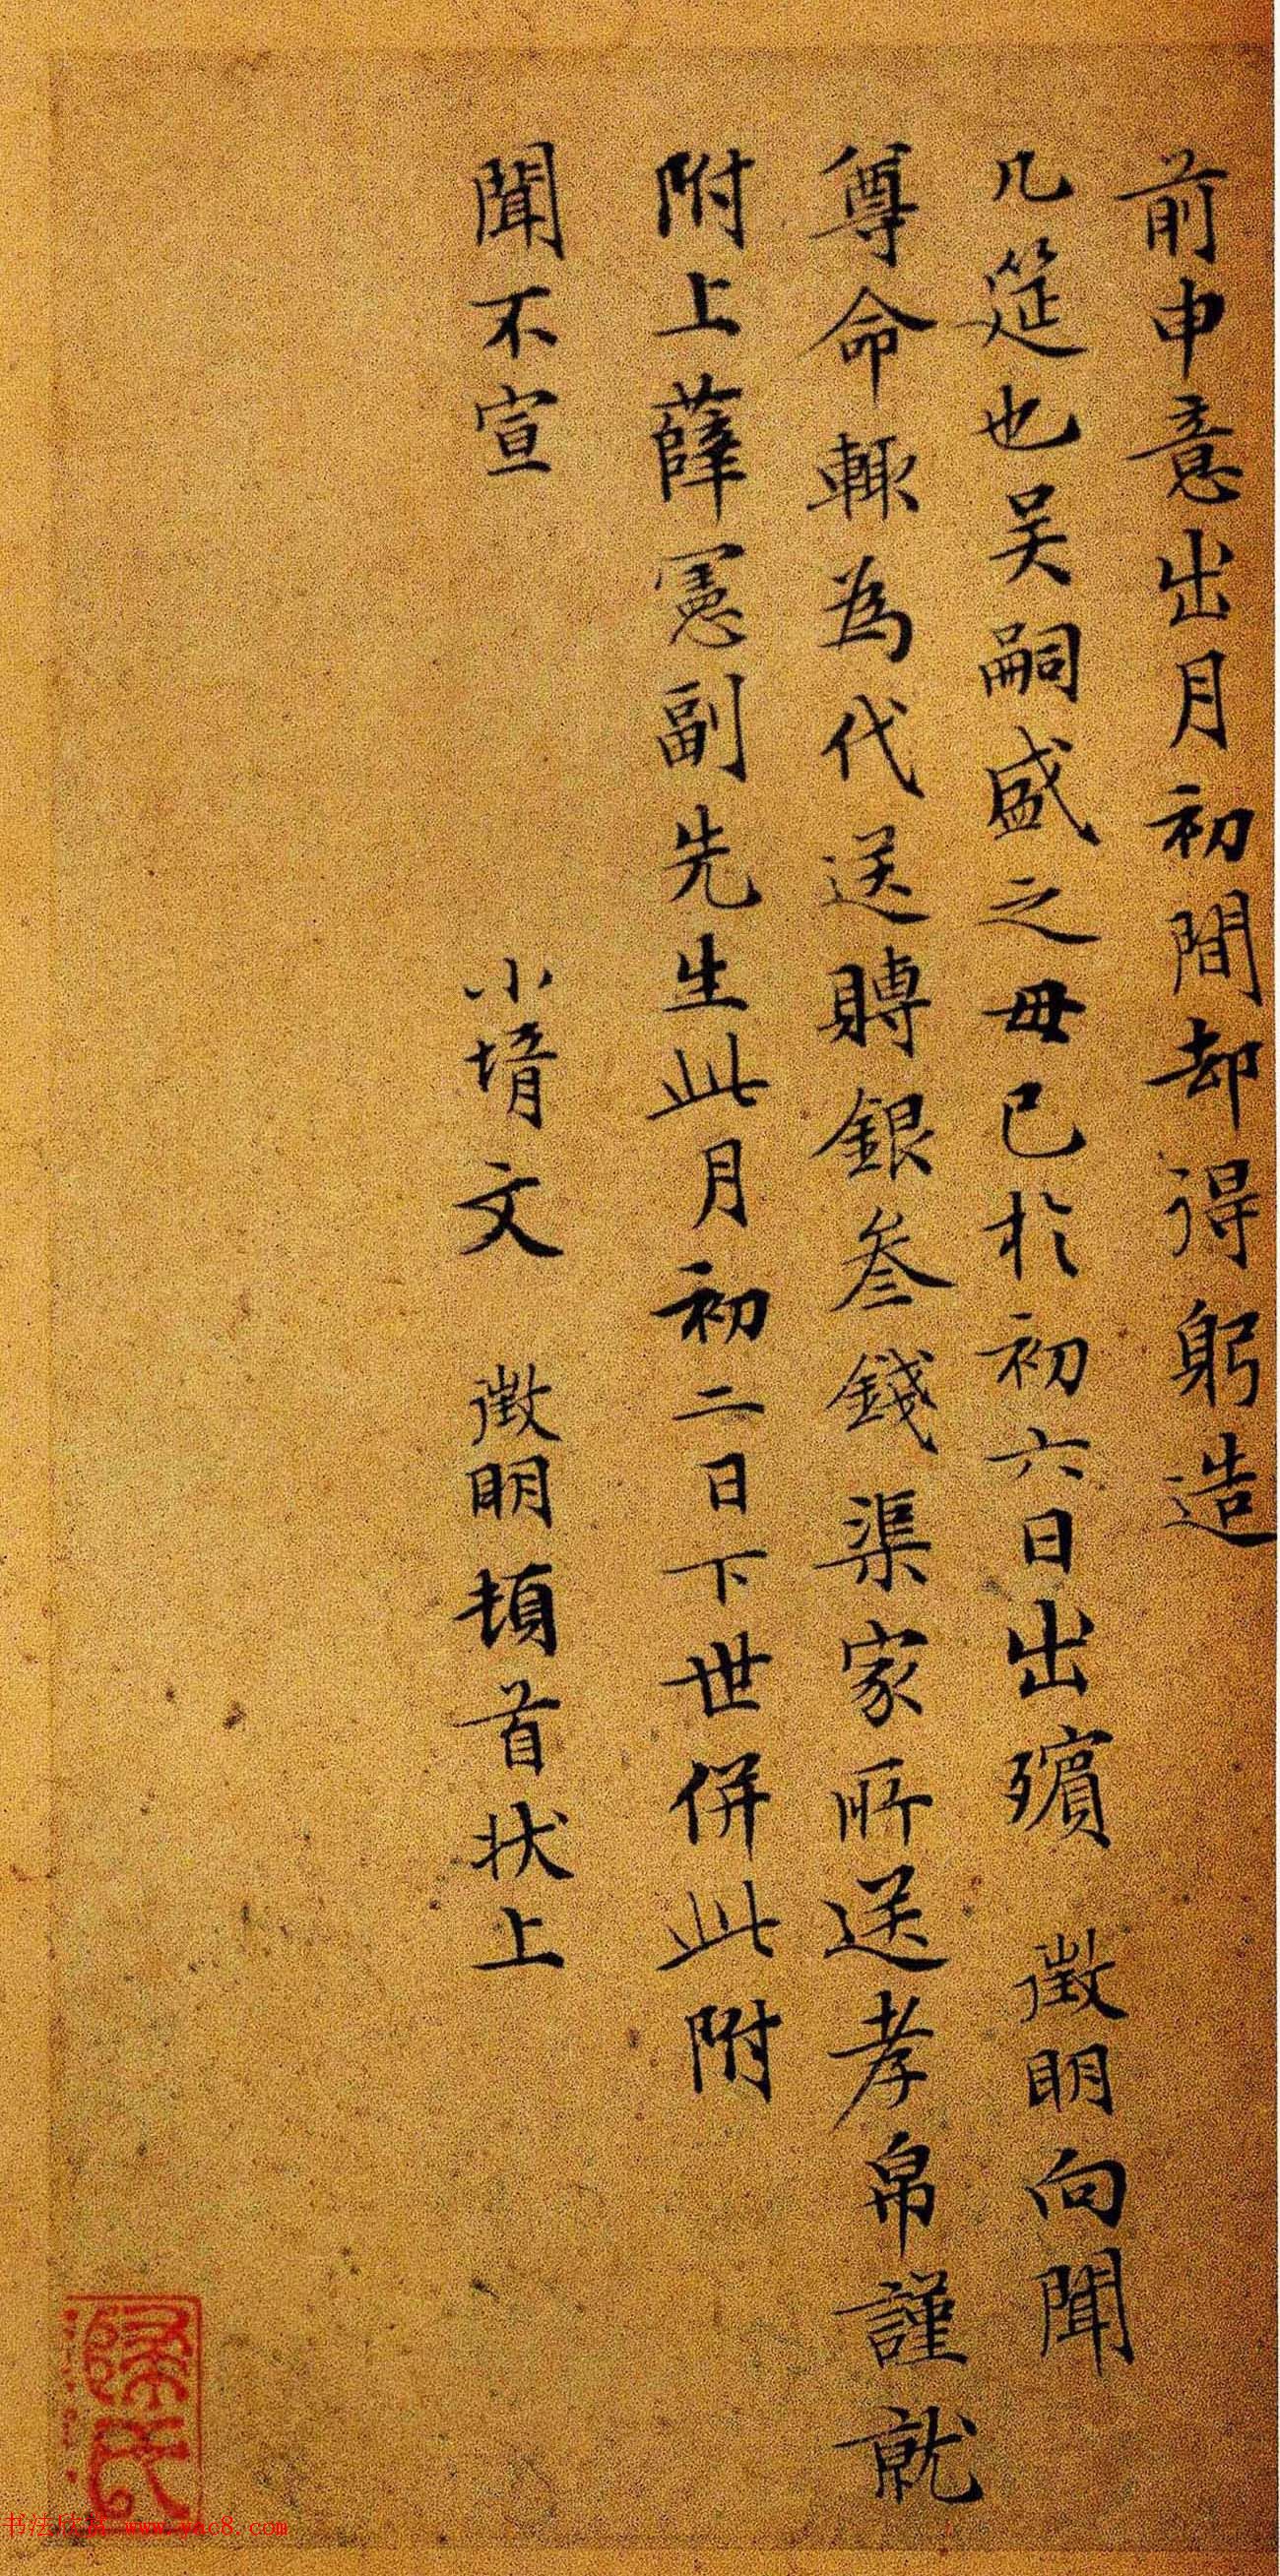 前申意出月初間却得躬造
几筵也吴嗣盛之母已於初六日出殯 徵明向聞
尊命輙為代送賻銀叁錢渠家所送孝帛謹就
附上薛憲副先生此月初二日下世併此附
聞不宣
小壻文 徵明頓首狀上
书法欣赏 www.yac8.com